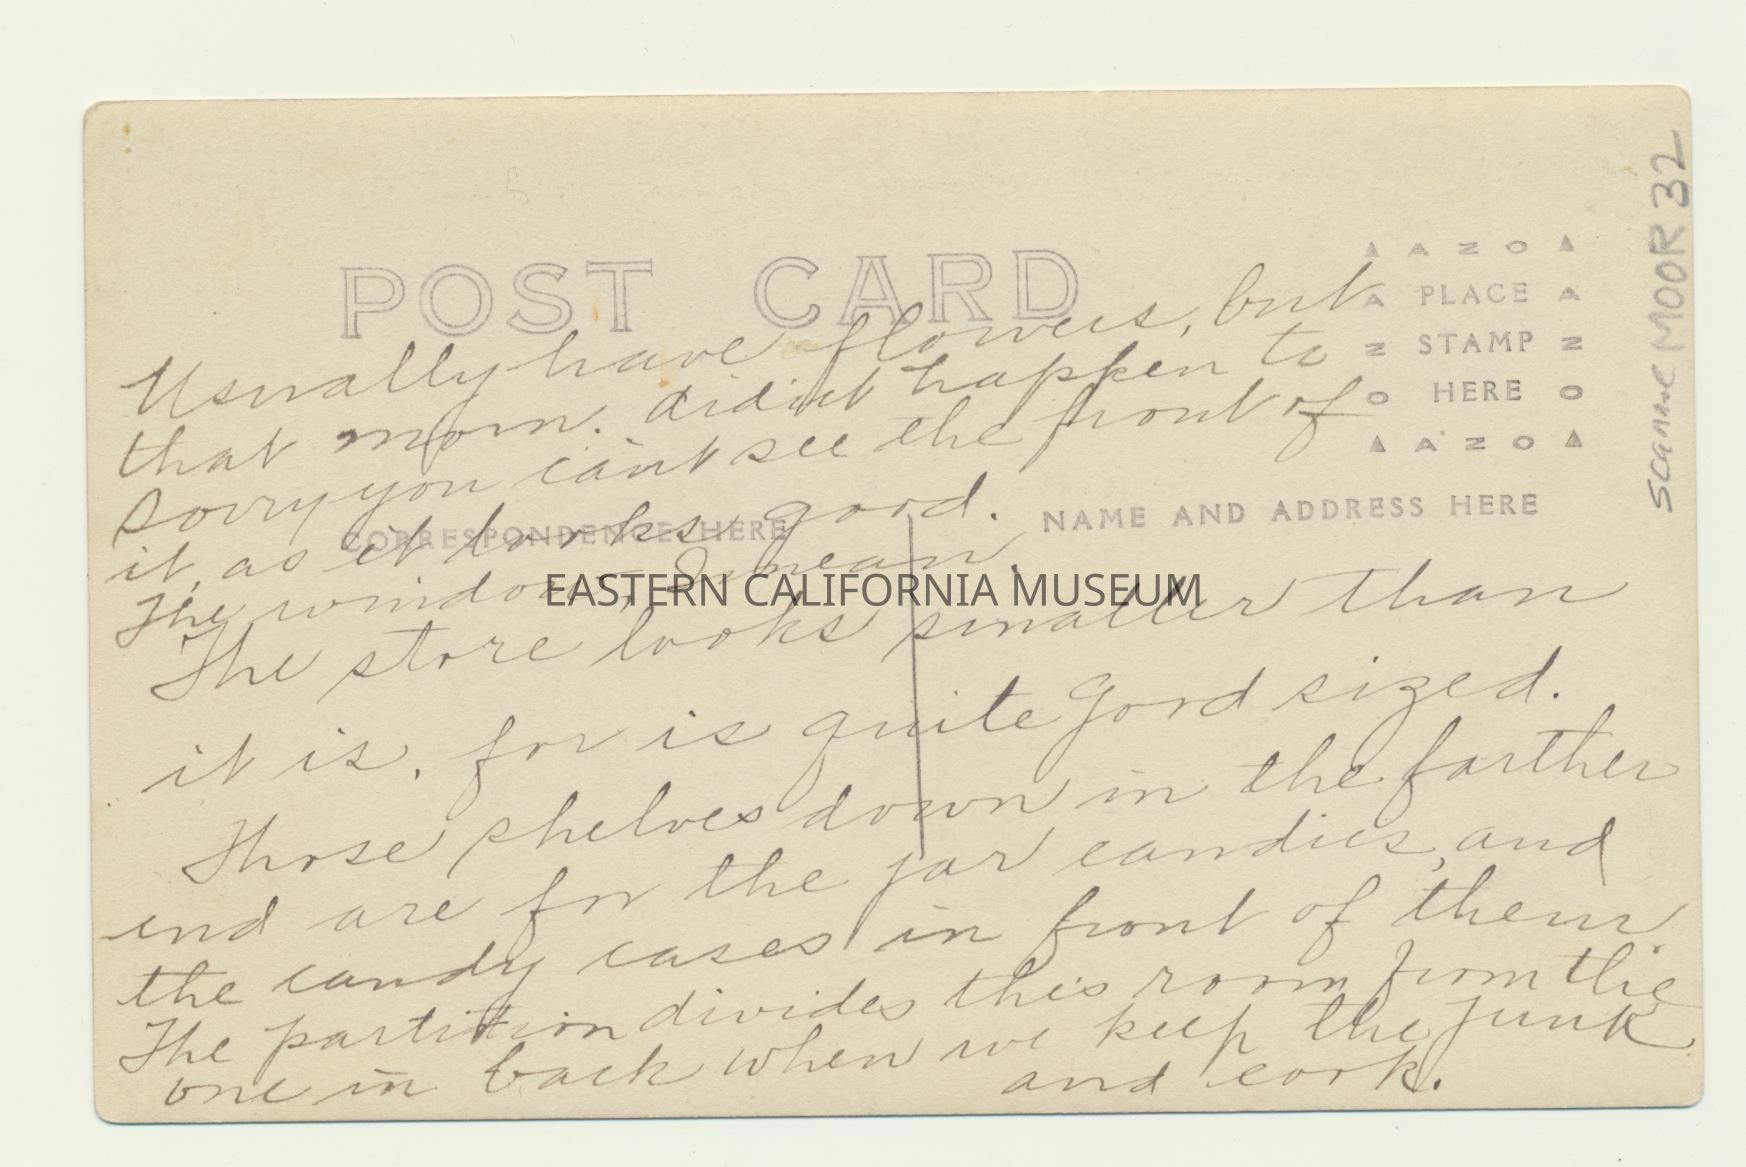 POST CARD
Usually have flowers, but
that morn. didn't happen to
Sorry you can't see the front of
it, as it looks good.
The window, I mean.
The store looks smaller than
it is, for is quite good sized.
Those shelves down in the farther
end are for the jar candies, and
the candy cases in front of them.
The partition divides this room from the
one in back when we keep the junk
and cook.
CORRESPONDENCE HERE
NAME AND ADDRESS HERE
AZO
PLACE
STAMP
HERE
AZO
EASTERN CALIFORNIA MUSEUM
MOOR 32